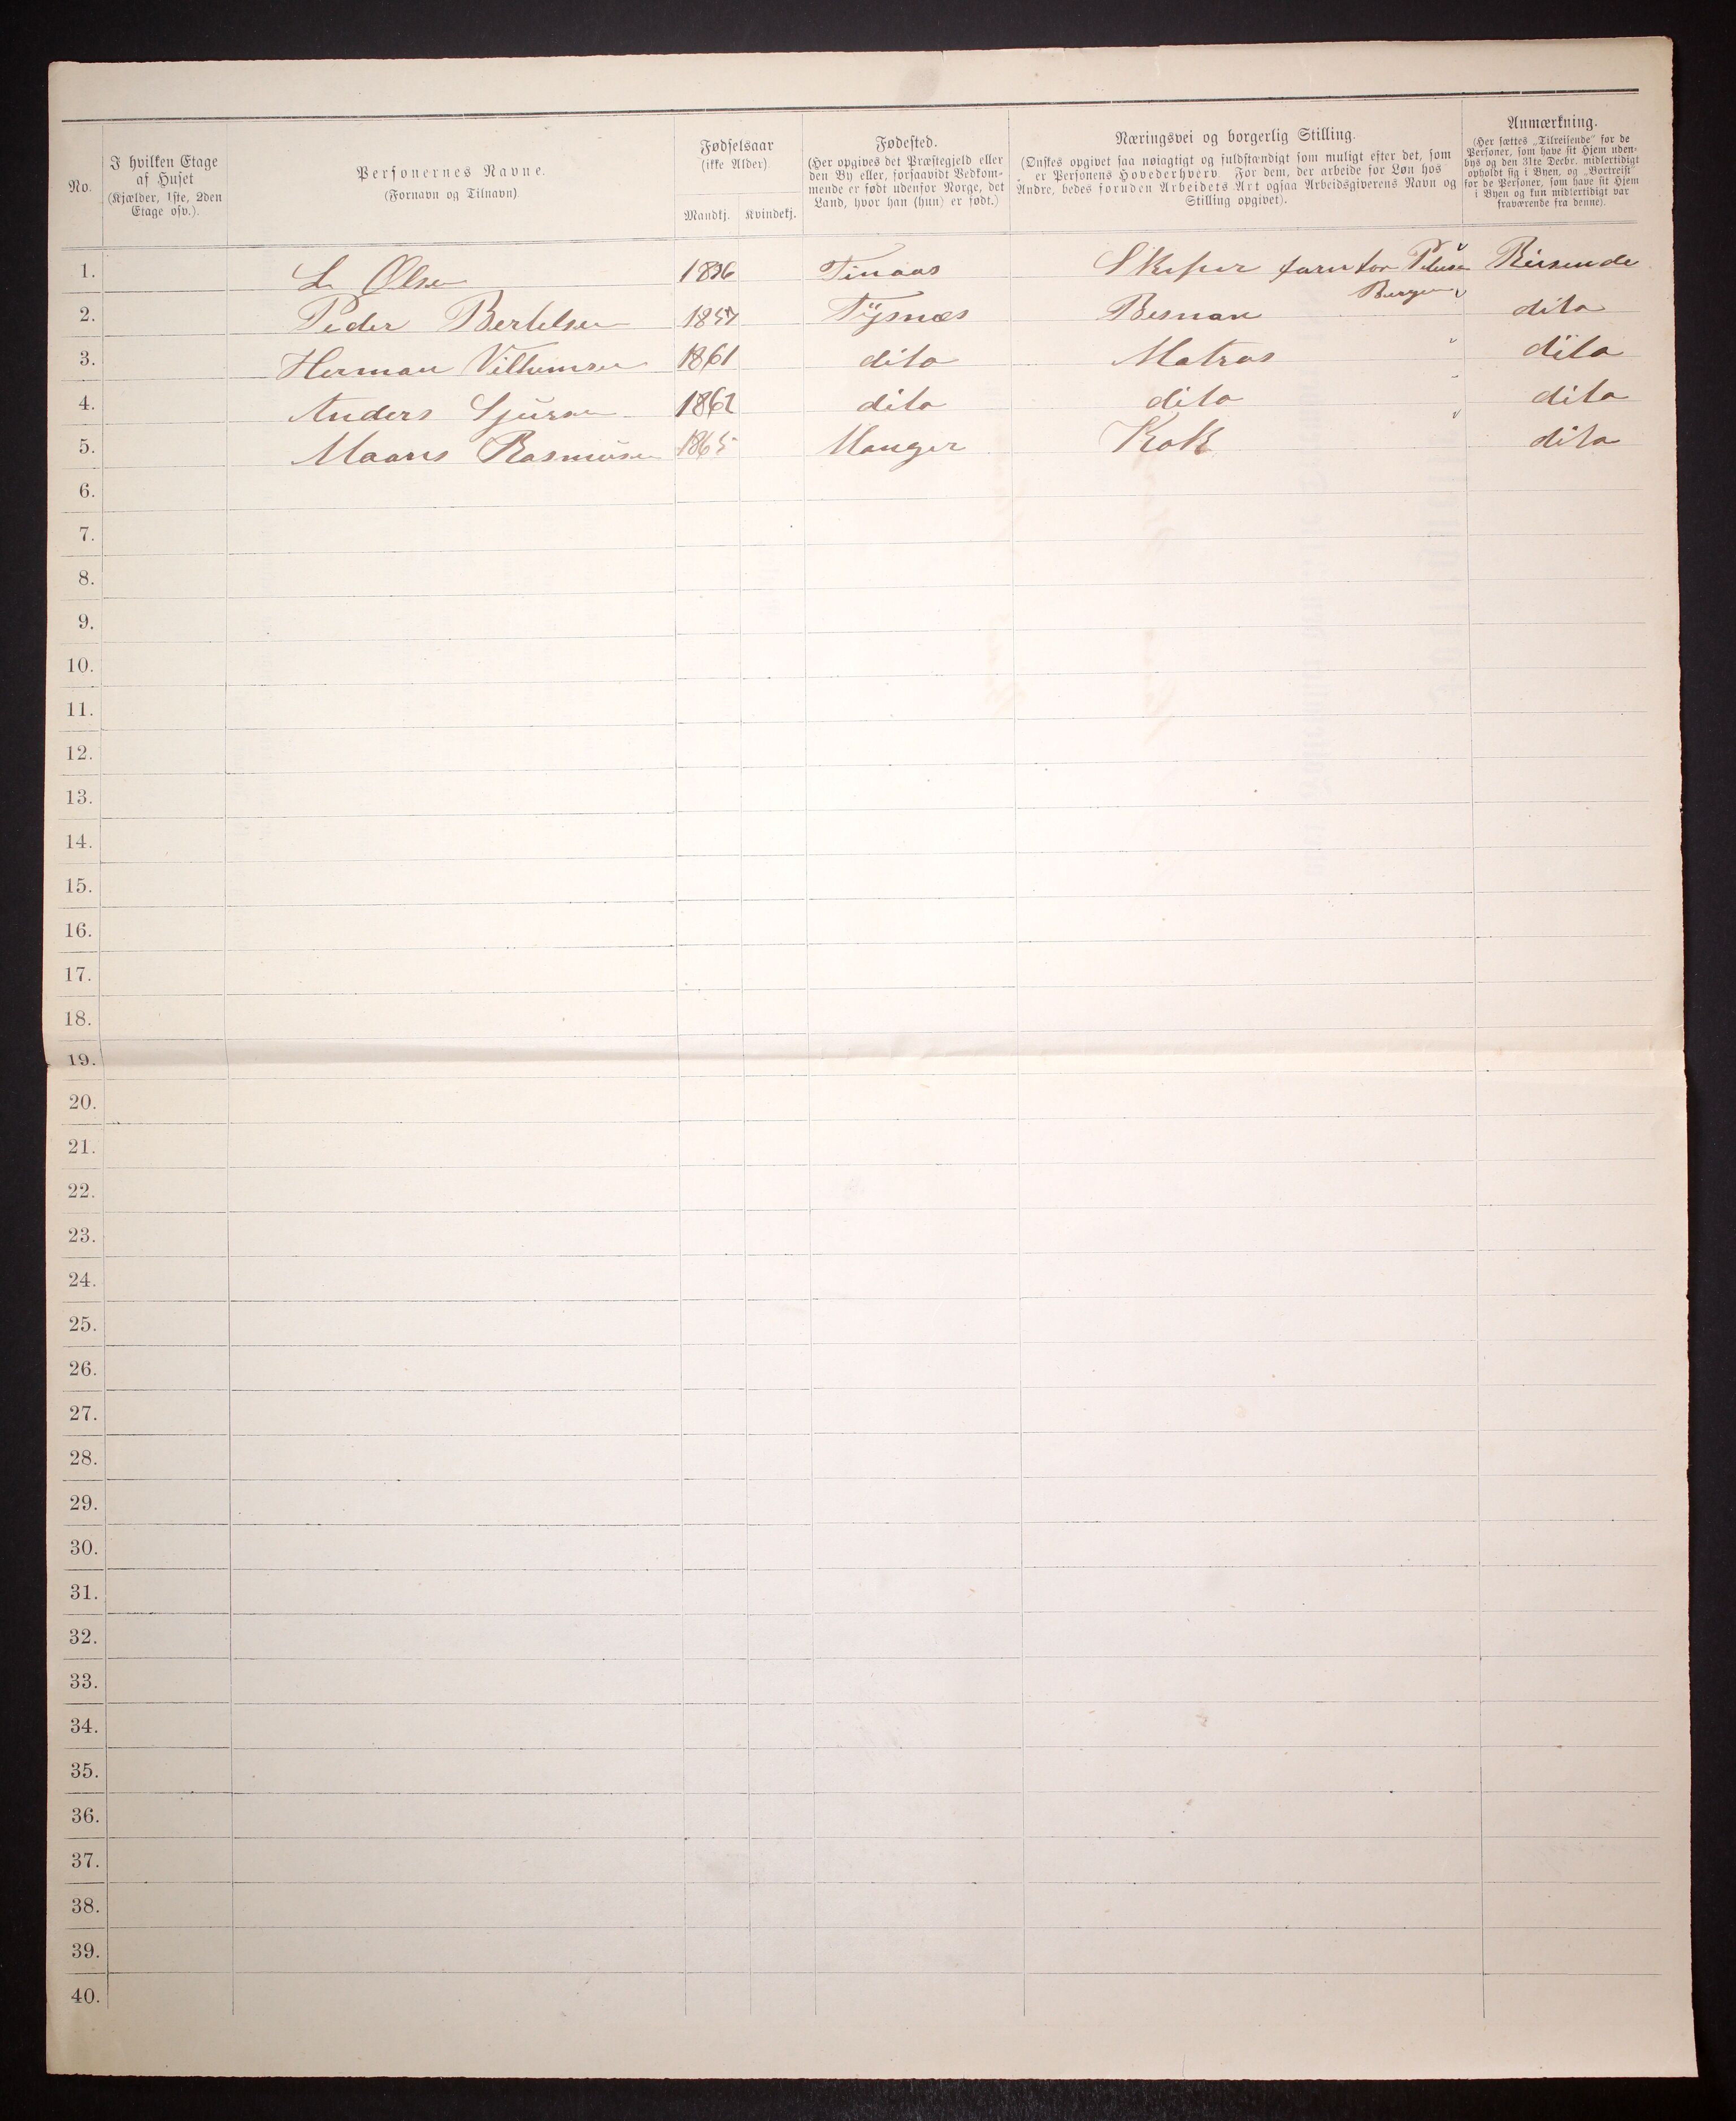 No.
I hvilken Etage af Huset
(Kjælder, 1ste, 2den Etage osv.).
Personernes Navne.
(Fornavn og Tilnavn)
Fødselsaar
(ikke Alder)
Mandkj. Kvindekj.
Fødested.
(Her opgives det Præstegjeld eller
den By eller, forsaavidt Vedkom-
mende er født udenfor Norge, det
Land, hvor han (hun) er født.)
Næringsvei og borgerlig Stilling.
(Ønskes opgivet saa nøiagtigt og fuldstændigt som muligt efter det, som
er Personens Hovederhverv. For dem, der arbeide for Løn hos
Andre, bedes foruden Arbeidets Art ogsaa Arbeidsgiverens Navn og
Stilling opgivet).
Anmærkning.
(Her sættes „Tilreisende" for de
Personer, som have sit Hjem uden-
bys og den 31te Decbr. midlertidigt
opholdt sig i Byen, og „Bortreist"
for de Personer, som have sit Hjem
i Byen og kun midlertidigt var
fraværende fra denne).
1. L Olsen 1836 Finaas Skiper Reisende
Bergen
2. Peder Bertelsen 1857 Tysnæs Besman dito
3. Herman Villumsen 1861 dito Matros dito
4. Anders Sjursen 1862 dito dito dito
5. Maans Rasmusen 1865 Manger Kok dito
6.
7.
8.
9.
10.
11.
12.
13.
14.
15.
16.
17.
18.
19.
20.
21.
22.
23.
24.
25.
26.
27.
28.
29.
30.
31.
32.
33.
34.
35.
36.
37.
38.
39.
40.